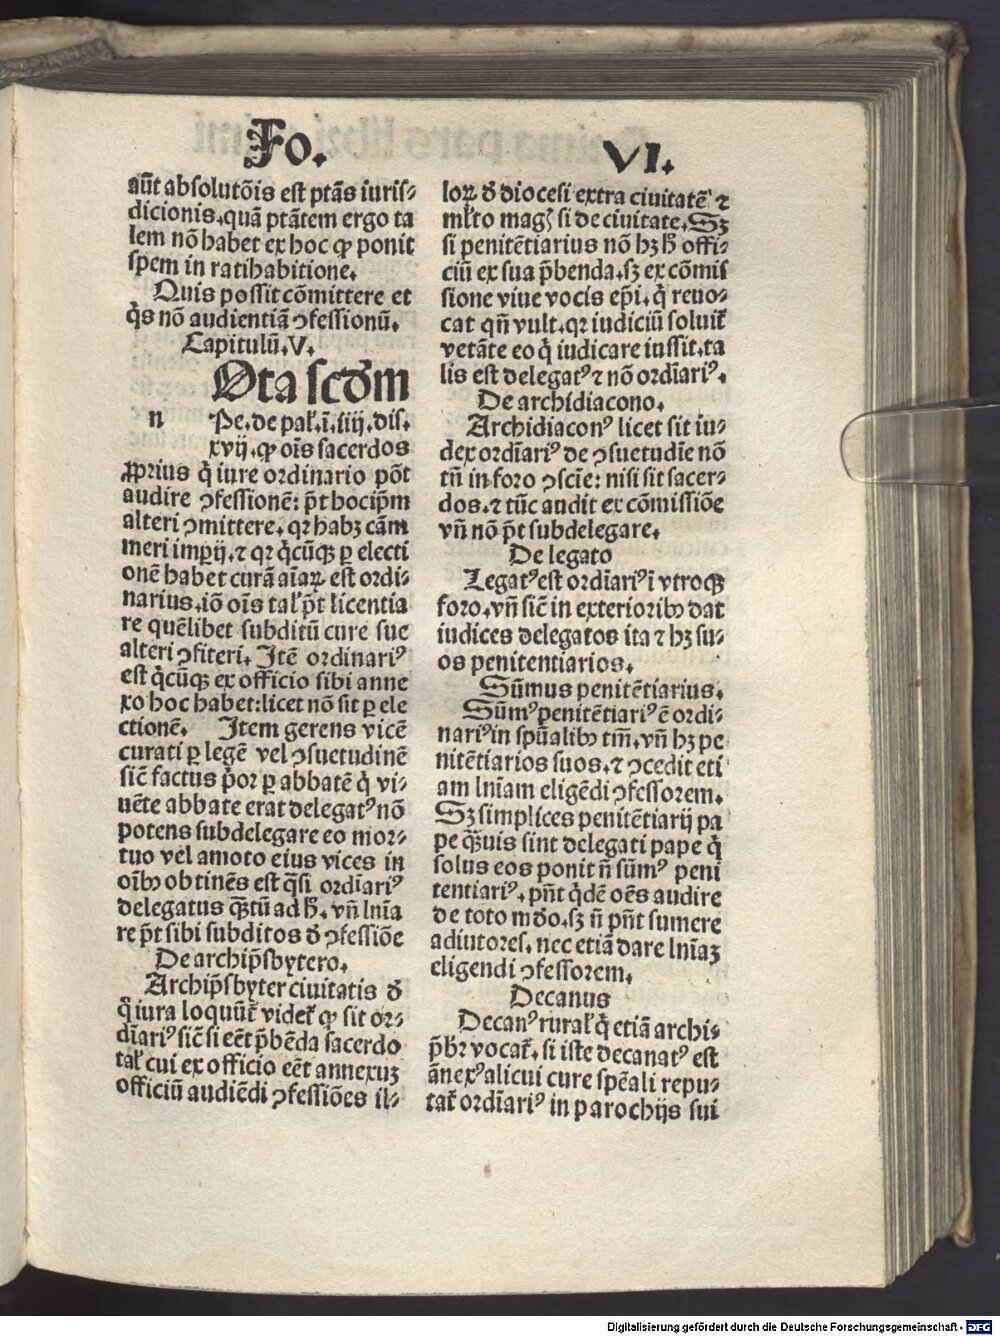 Fo. VI.
aūt absolutōis est ptās iuris⸗
dicionis.quā ptātem ergo ta
lem nō habet ex hoc ꝙ ponit
spem in ratihabitione.
Quis possit cōmittere et
q̇s nō audientiā ꝯfessionū.
Capitulū.V.
Ota scd̄m
n Pe.de pal̉.ī.iiij.dis.
xvij.ꝙ oīs sacerdos
ꝓprius q̇ iure ordinario pōt
audire ꝯfessionē: p̄t hocip̄m
alteri ꝯmittere. qꝛ habꝫ cām
meri imꝑij.⁊ qꝛ q̇cūqꝫ ꝑ electi
onē habet curā aīaꝝ est ordi⸗
narius.iō oīs tal̉ p̄t licentia
re quēlibet subditū cure sue
alteri ꝯfiteri. Itē ordinariꝰ
est q̇cūqꝫ ex officio sibi anne
xo hoc habet:licet nō sit ꝑ ele
ctionē. Item gerens vicē
curati ꝑ legē vel ꝯsuetudinē
sic̄ factus p̓or ꝑ abbatē q̇ vi⸗
uēte abbate erat delegatꝰ nō
potens subdelegare eo mor⸗
tuo vel amoto eius vices in
oībꝫ obtinēs est q̄si ordīariꝰ
delegatus qꝫtū ad h̄. vn̄ lnīa
re p̄t sibi subditos đ ꝯfessiōe
De archip̄sbytero.
Archip̄sbyter ciuitatis đ
q̇ iura loquūt̄ videt̉ ꝙ sit or⸗
dīariꝰ sic̄ si eēt p̄bēda sacerdo
tal̉ cui ex officio eēt annexuꝫ
officiū audiēdi ꝯfessiōes il⸗
loꝝ đ diocesi extra ciuitatē ⁊
ml̄to magꝭ si de ciuitate. Sꝫ
si penitētiarius nō hꝫ h̄ offi⸗
ciū ex sua p̄benda.sꝫ ex cōmis
sione viue vocis ep̄i.q̇ reuo⸗
cat qn̄ vult.qꝛ iudiciū soluit̉
vetāte eo q̇ iudicare iussit.ta
lis est delegatꝰ ⁊ nō ordīariꝰ.
De archidiacono.
Archidiaconꝰ licet sit iu⸗
dex ordīariꝰ de ꝯsuetudīe nō
tn̄ in foro ꝯscīe: nisi sit sacer⸗
dos.⁊ tūc audit ex cōmissiōe
vn̄ nō p̄t subdelegare.
De legato
Legatꝰ est ordīariꝰ ī vtroqꝫ
foro.vn̄ sic̄ in exterioribꝫ dat
iudices delegatos ita ⁊ hꝫ su⸗
os penitentiarios.
Sūmus penitētiarius.
Sūmꝰ penitētiariꝰ ē ordi⸗
nariꝰ in spūalibꝫ tm̄.vn̄ hꝫ pe
nitētiarios suos.⁊ ꝯcedit eti
am lnīam eligēdi ꝯfessorem.
Sꝫ simplices penitētiarij pa
pe qꝫuis sint delegati pape q̇
solus eos ponit n̄ sūmꝰ peni
tentiariꝰ. pn̄t q̇dē oēs audire
de toto mđo.sꝫ n̄ pn̄t sumere
adiutores. nec etiā dare lnīaꝫ
eligendi ꝯfessorem.
Decanus
Decanꝰ rural̉ q̇ etiā archi⸗
p̄br̄ vocat̉. si iste decanatꝰ est
ānexꝰ alicui cure spēali repu⸗
tat̉ ordīariꝰ in parochijs sui